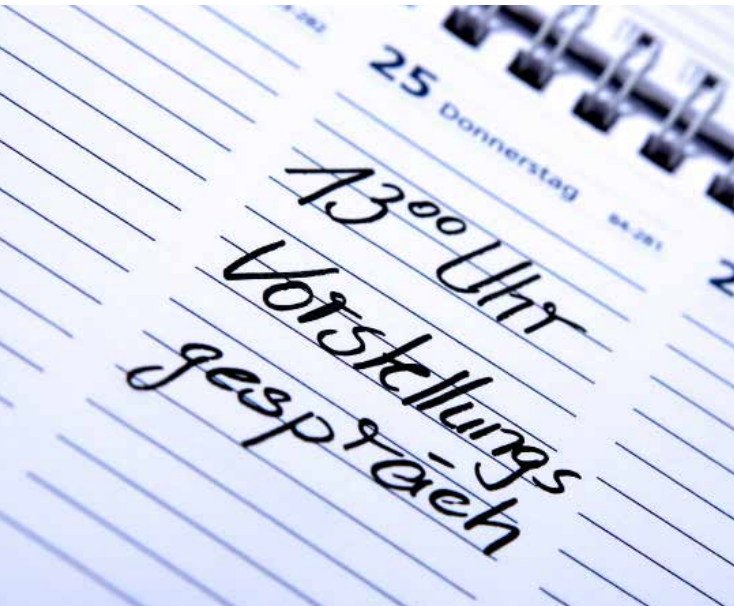 25 Donnerstag 84-281
13⁰⁰ Uhr
Vorstellungs
gespräch